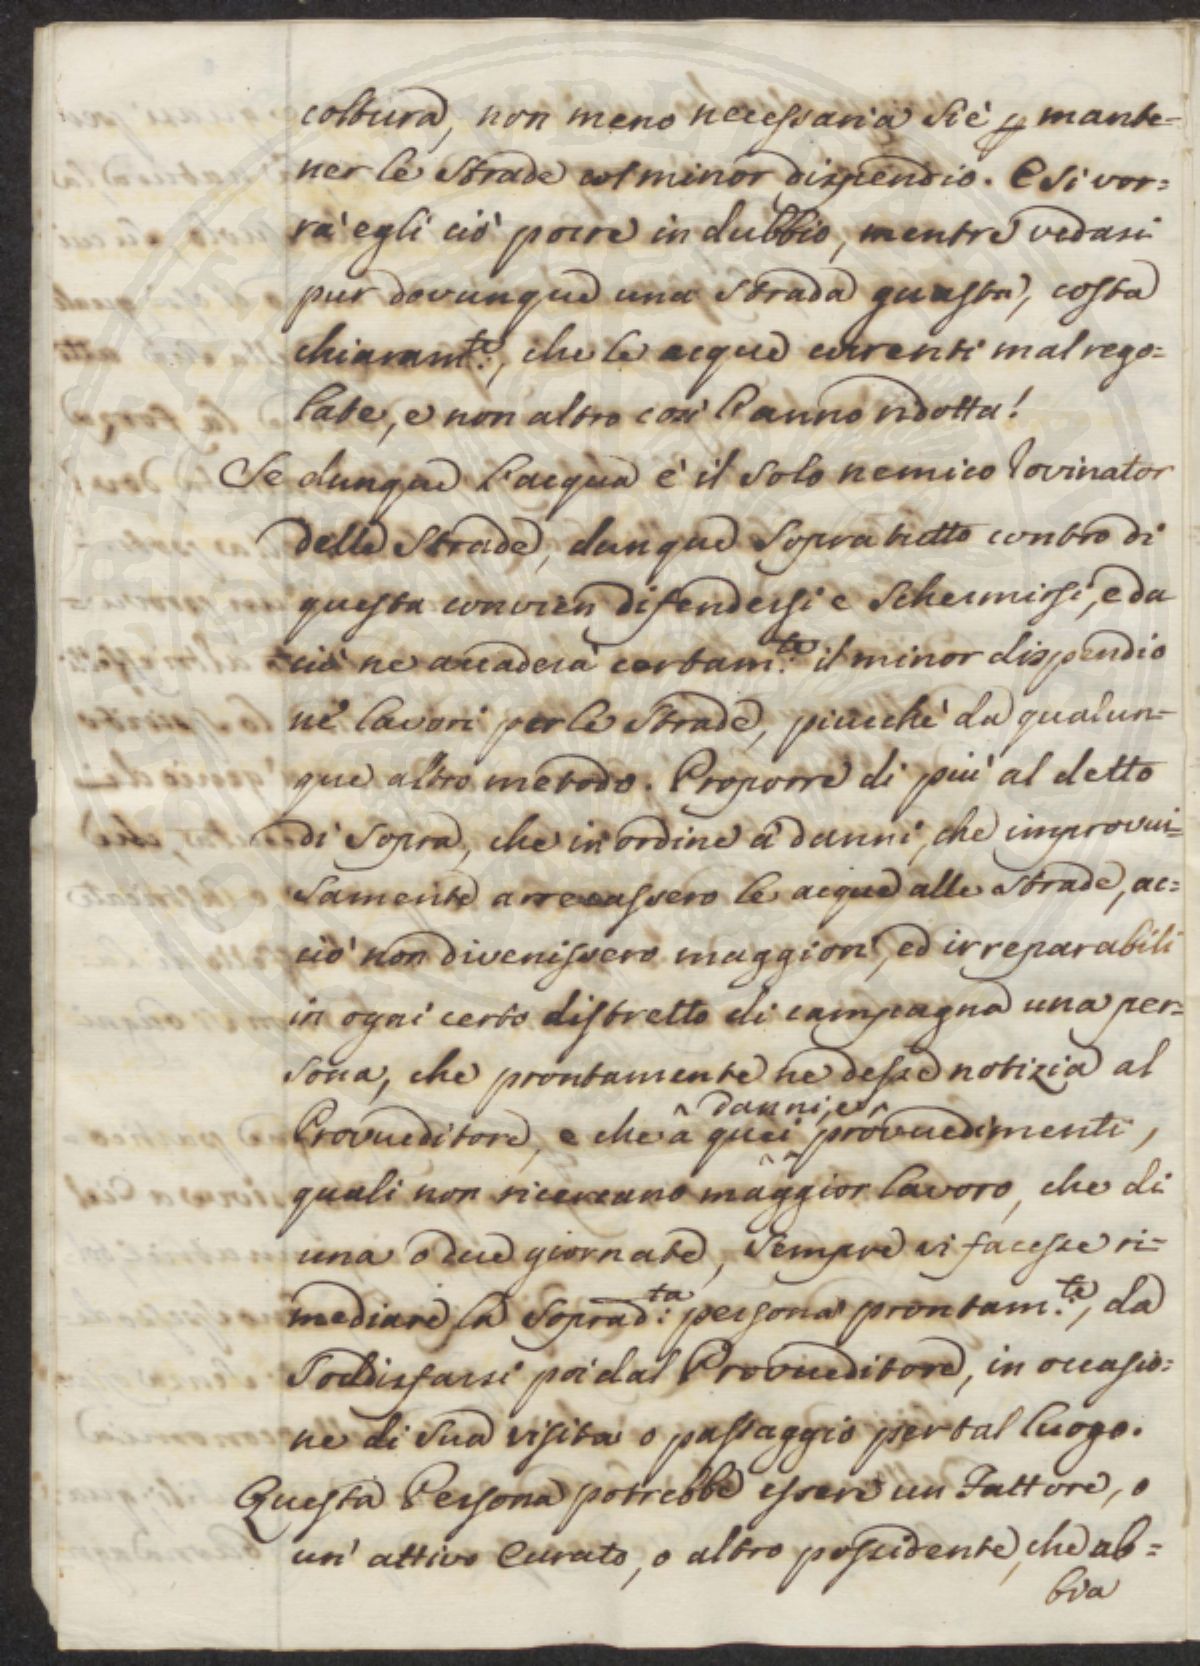 coltura, non meno necessaria si è p mante=
ner le Strade col minor dispendio. E si vor=
rà egli ciò porre in dubbio, mentre vedasi
pur dovunque una Strada guasta, costa
chiaram.te, che le acque correnti mal rego=
late, e non altro così l'anno ridotta!
Se dunque l'acqua è il solo nemico rovinator
delle Strade, dunque sopra tutto contro di
questa convien difendersi e schermirsi, e da
ciò ne accaderà certam.te il minor dispendio
ne' lavori per le Strade, piucchè da qualun=
que altro metodo. Proporre di più al detto
di sopra, che in ordine a' danni, che improvvi=
samente arrecassero le acque alle Strade, ac=
ciò non divenissero maggiori, ed irreparabili
in ogni certo distretto di campagna una per=
sona, che prontamente ne desse notizia al
Provveditore, e che a quei danni, e provvedimenti,
quali non ricercano maggior lavoro, che di
una o due giornate, sempre vi facesse ri=
mediare la soprad.ta persona prontam.te, da
soddisfarsi poi dal Provveditore, in occasio=
ne di sua visita o passaggio per tal luogo.
Questa Persona potrebbe essere un Fattore, o
un' attivo Curato, o altro possidente, che ab=
bia